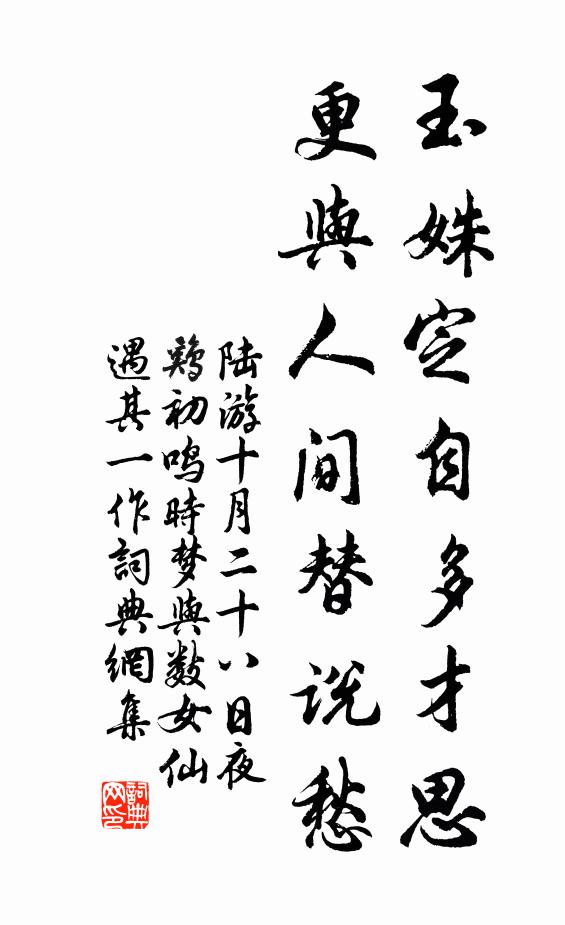 玉姝定自多才思
更與人间替说愁
陆游十月二十八日夜
鶏初鸣時梦與数女仙
遇其一作詞典網集
詞典网印